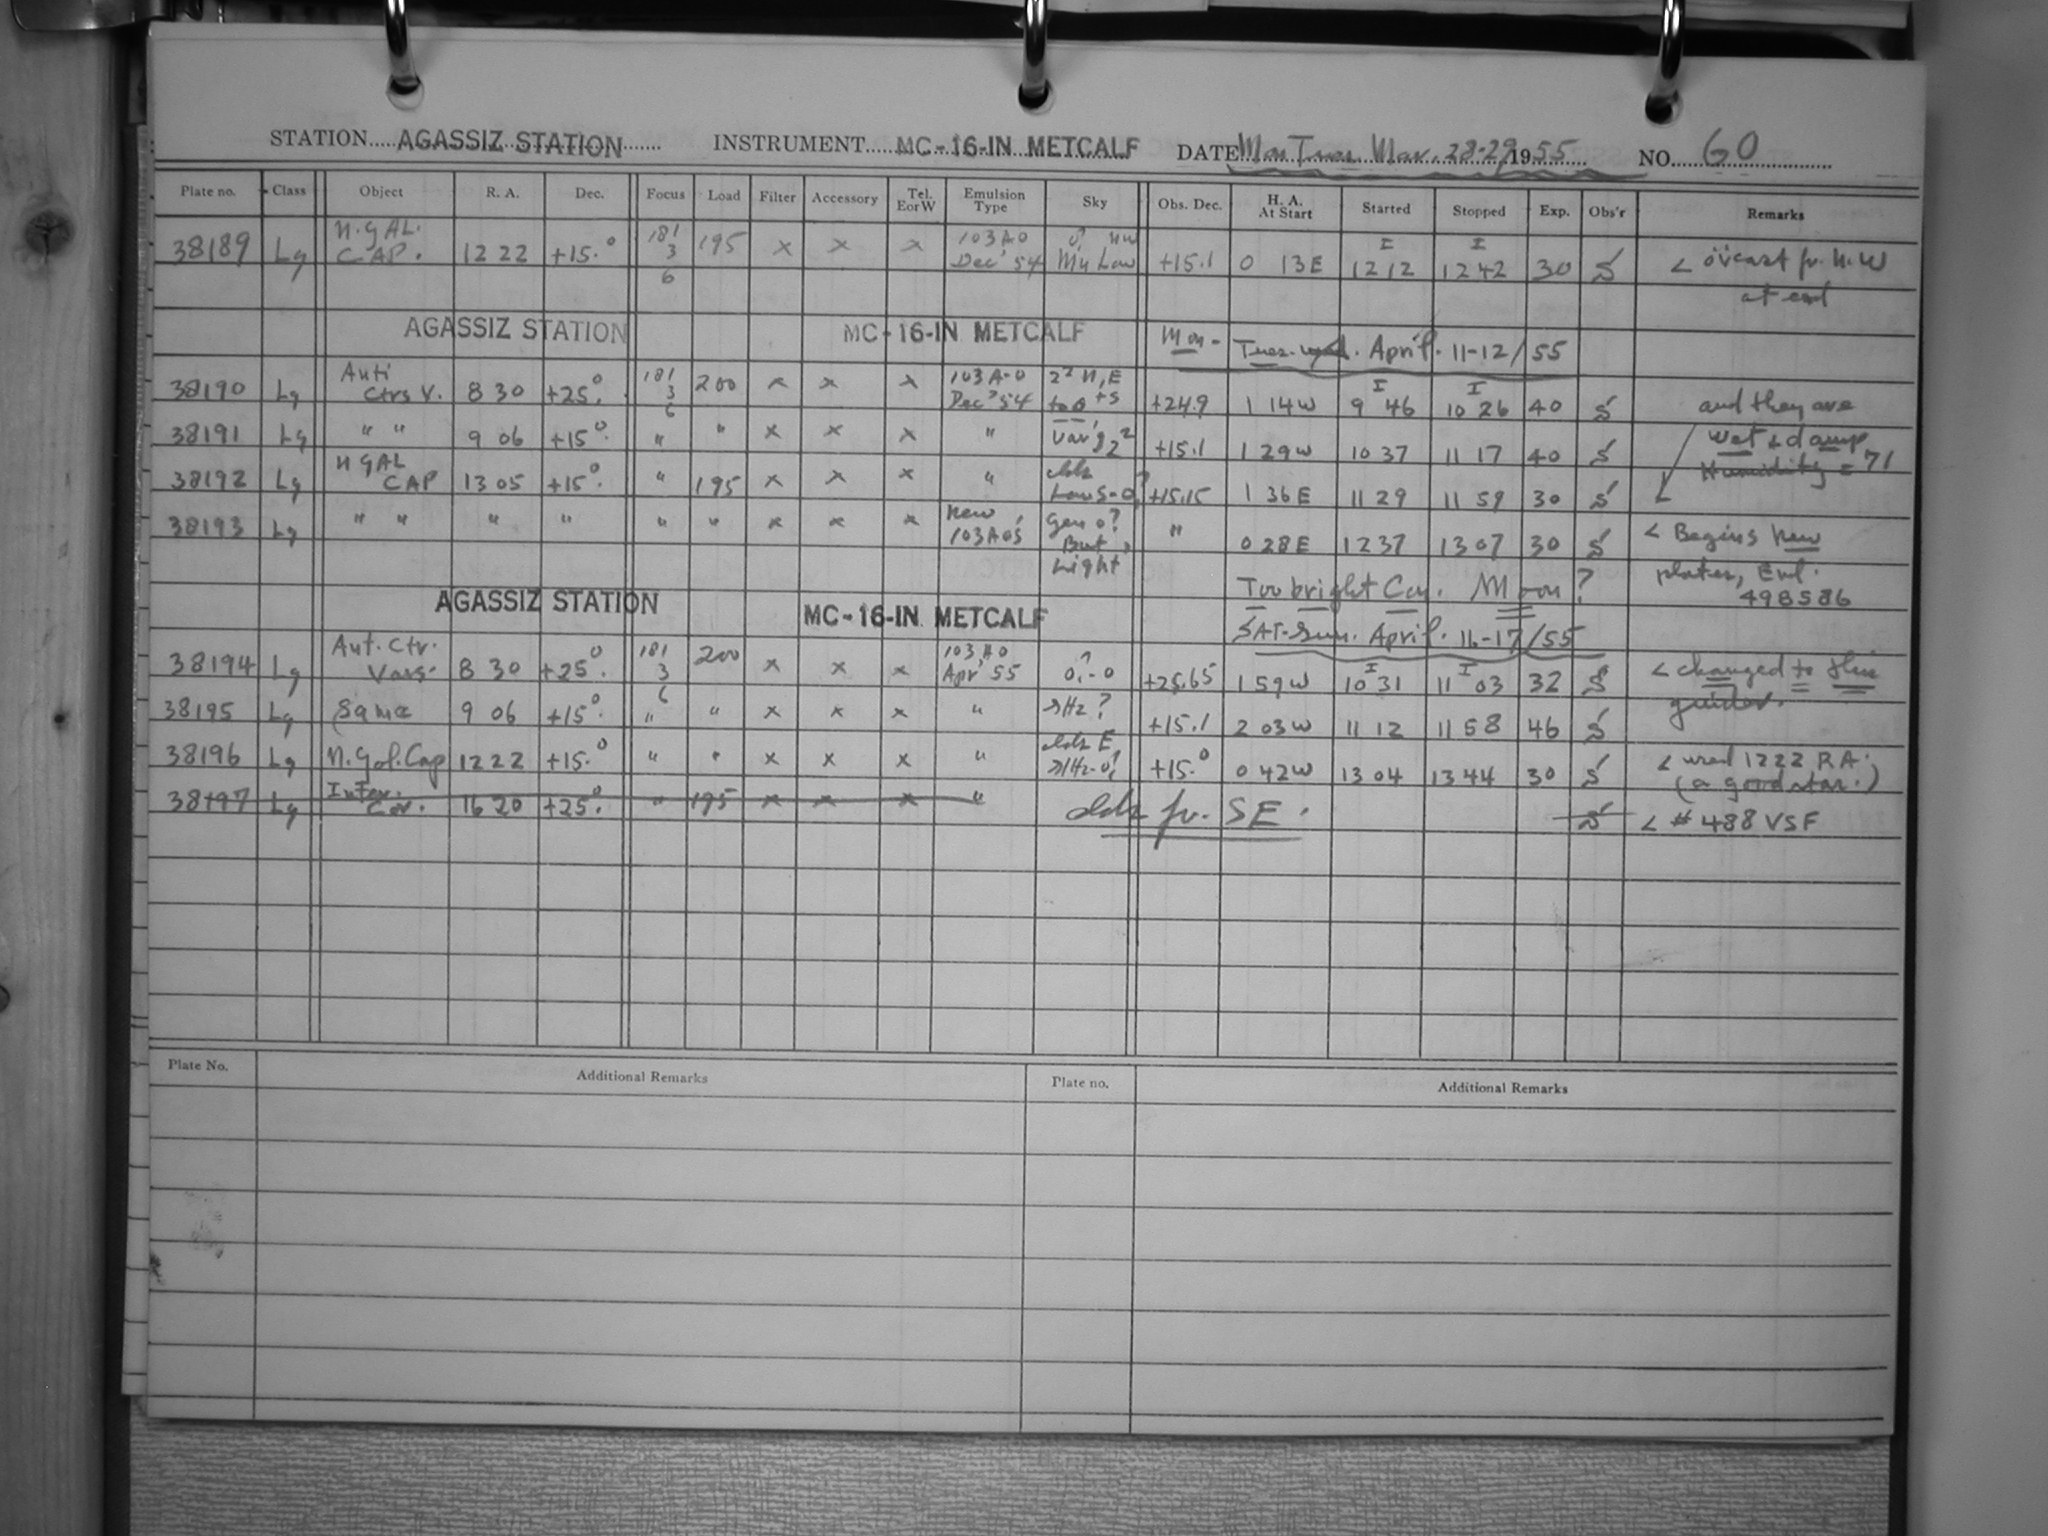 STATION AGASSIZ STATION INSTRUMENT MC-16-IN METCALF DATE Mon Tues Mar. 28-29 1955 NO. 60
Plate no. Class Object R. A. Dec. Focus Load Filter Accessory Tel. E or W Emulsion Type Sky Obs. Dec. H. A. At Start Started Stopped Exp. Obs'r Remarks
38189 Lg N. GAL. CAP. 12 22 +15.° 181 3 6 195 x x x 103 A O Dec' 54 +15.1 0 13E 12 12 12 42 30 S < o'vcast fr. N.W
at end
AGASSIZ STATION MC-16-IN METCALF Mon- Tues. April. 11-12/55
38190 Lg Anti Ctrs V. 8 30 +25.° 181 3 6 200 x x x 103 A-O Dec' 54 +24.9 1 14W 9 46 10 26 40 S and they are
38191 Lg " " 9 06 +15.° " " x x x " +15.1 1 29W 10 37 11 17 40 S wet & damp
Humidity = 71
38192 Lg N GAL CAP 13 05 +15.° " 195 x x x " +15.15 1 36E 11 29 11 59 30 S
38193 Lg " " " " " " x x x New 103 A O's Gen o? But Light " 0 28E 12 37 13 07 30 S < Begins New
plates, Eml. 498586
Too bright Moon?
AGASSIZ STATION MC-16-IN METCALF SAT-Sun. April. 16-17/55
38194 Lg Ant. Ctr. Vars. 8 30 +25.° 181 3 6 200 x x x 103 A O Apr' 55 +25.65 1 59W 10 31 11 03 32 S < changed to this
guider.
38195 Lg Same 9 06 +15.° " " x x x " sHz? +15.1 2 03W 11 12 11 58 46 S
38196 Lg N. Gal. Cap 12 22 +15.° " " x x x " +15.° 0 42W 13 04 13 44 30 S < used 1222 RA.
(a good star.)
38197 Lg Inter. Cor. 16 20 +25.° " 195 x x x " clds fr. SE. S < # 488 VSF
Plate No. Additional Remarks Plate no. Additional Remarks